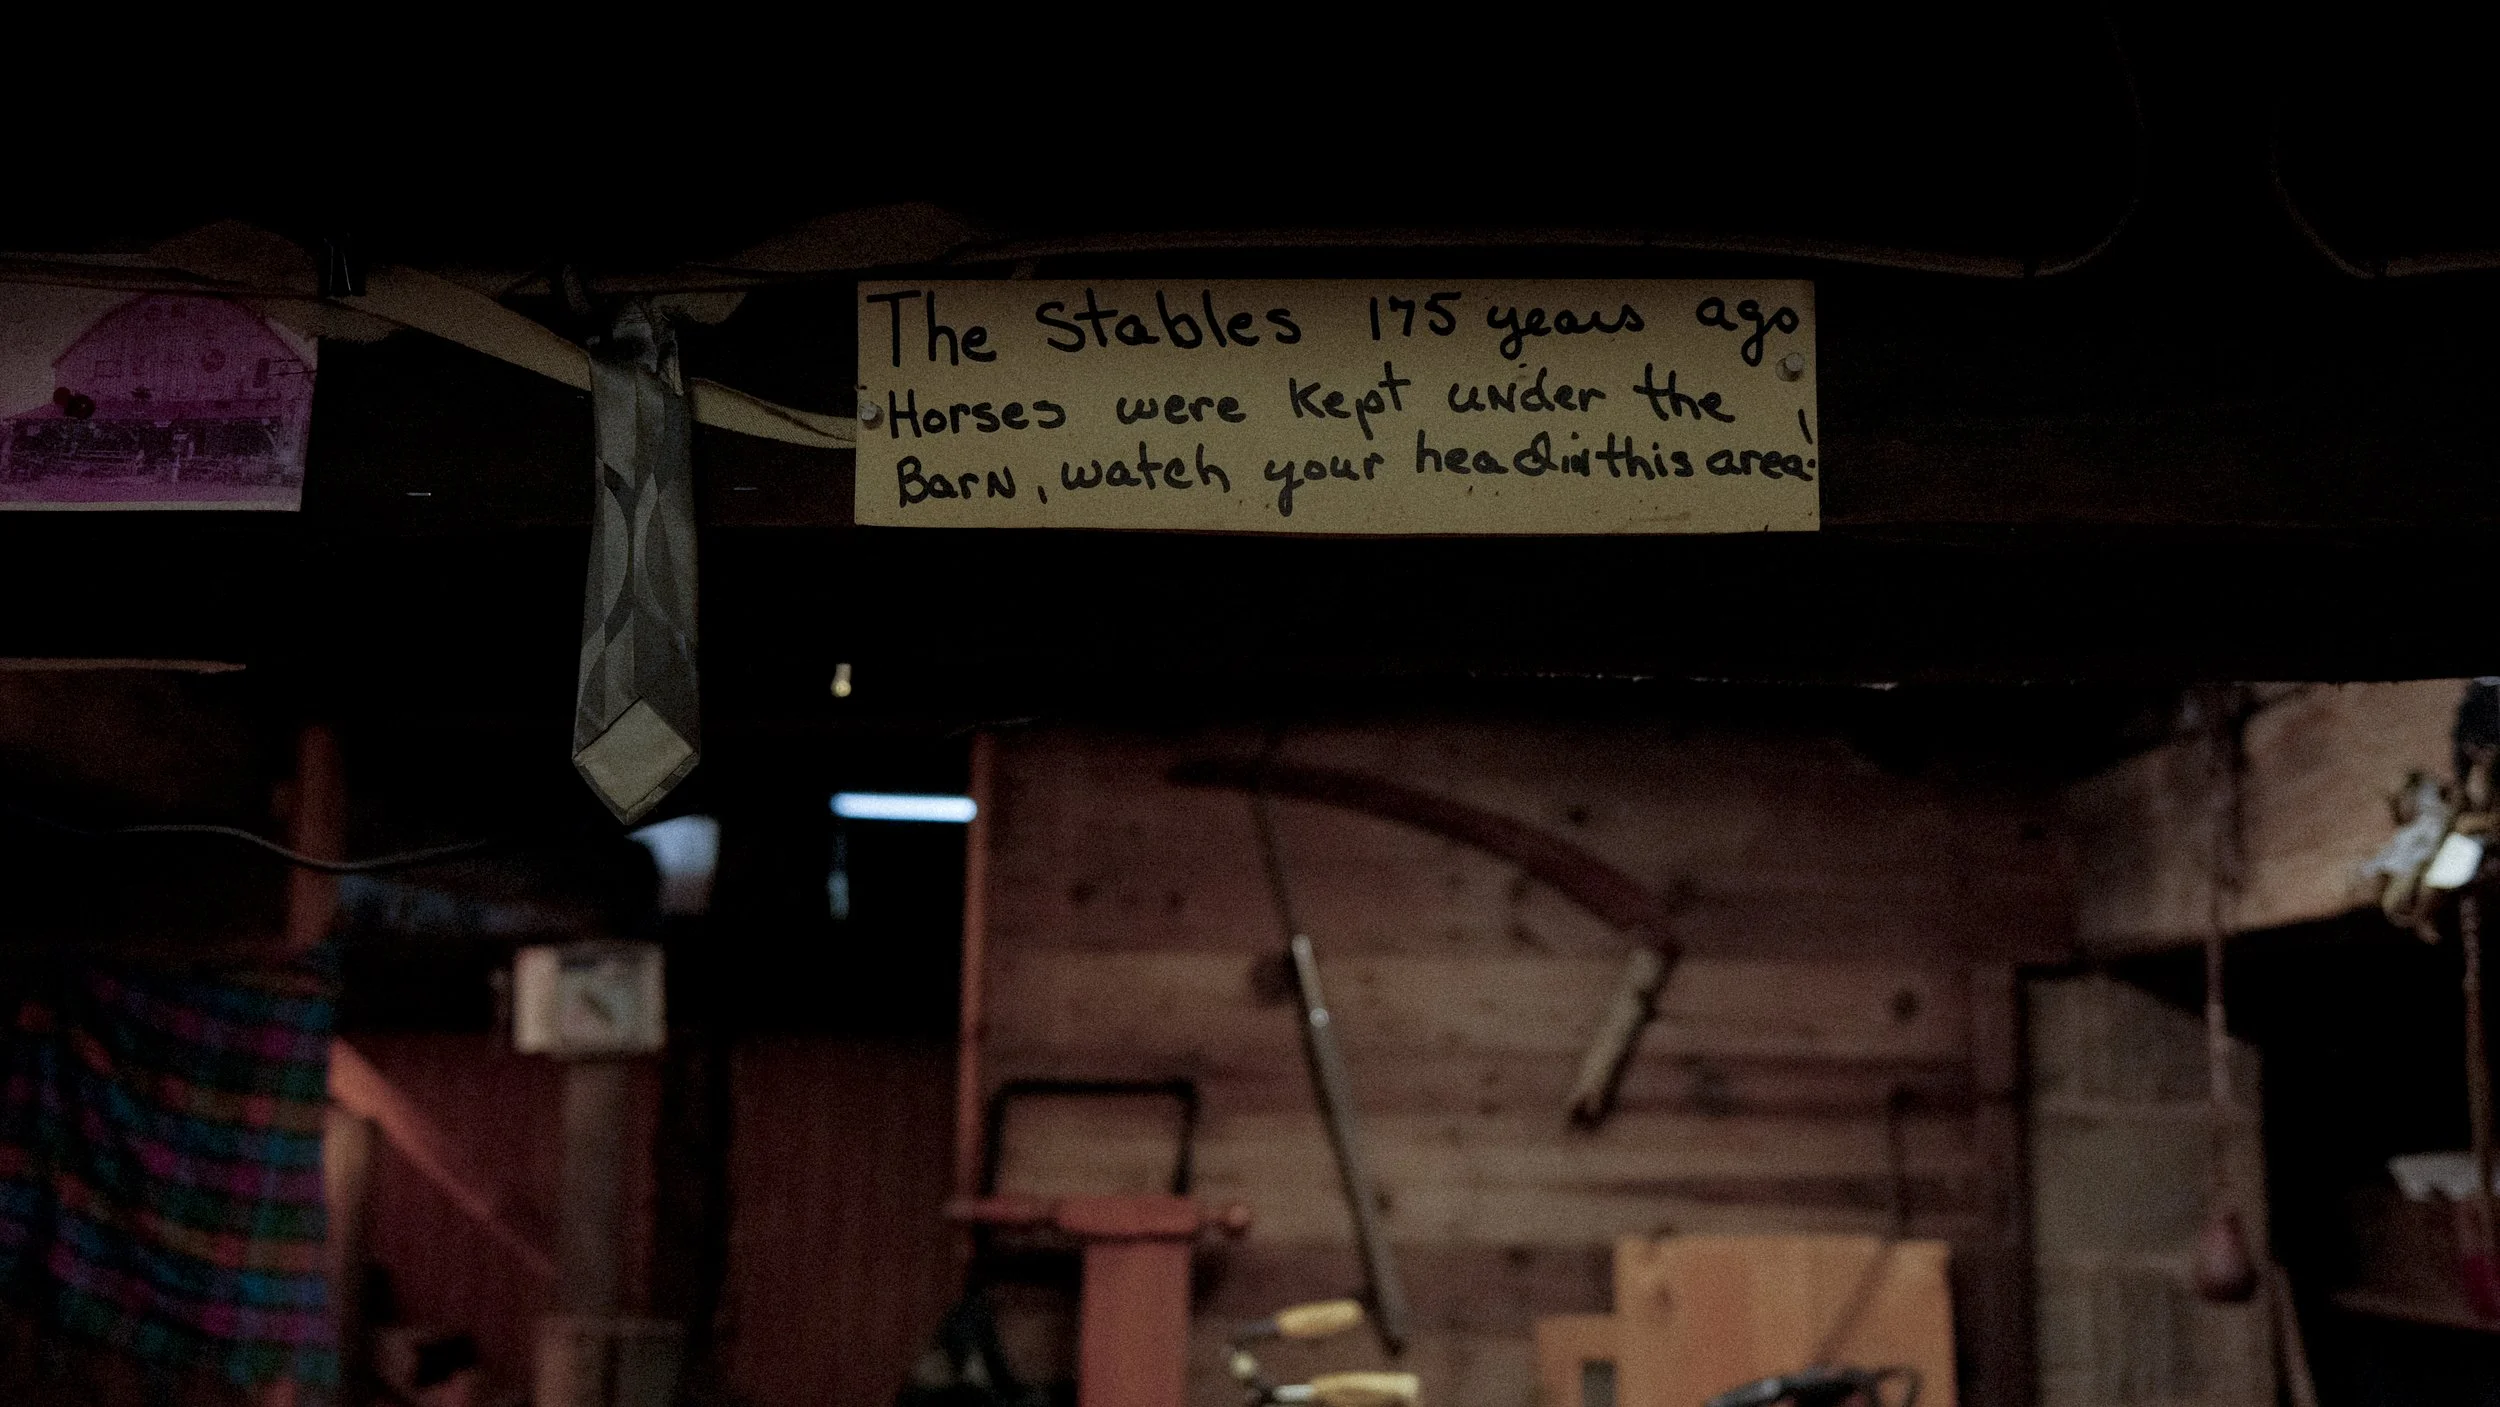 The Stables 175 years ago
Horses were kept under the
Barn, watch your head in this area!